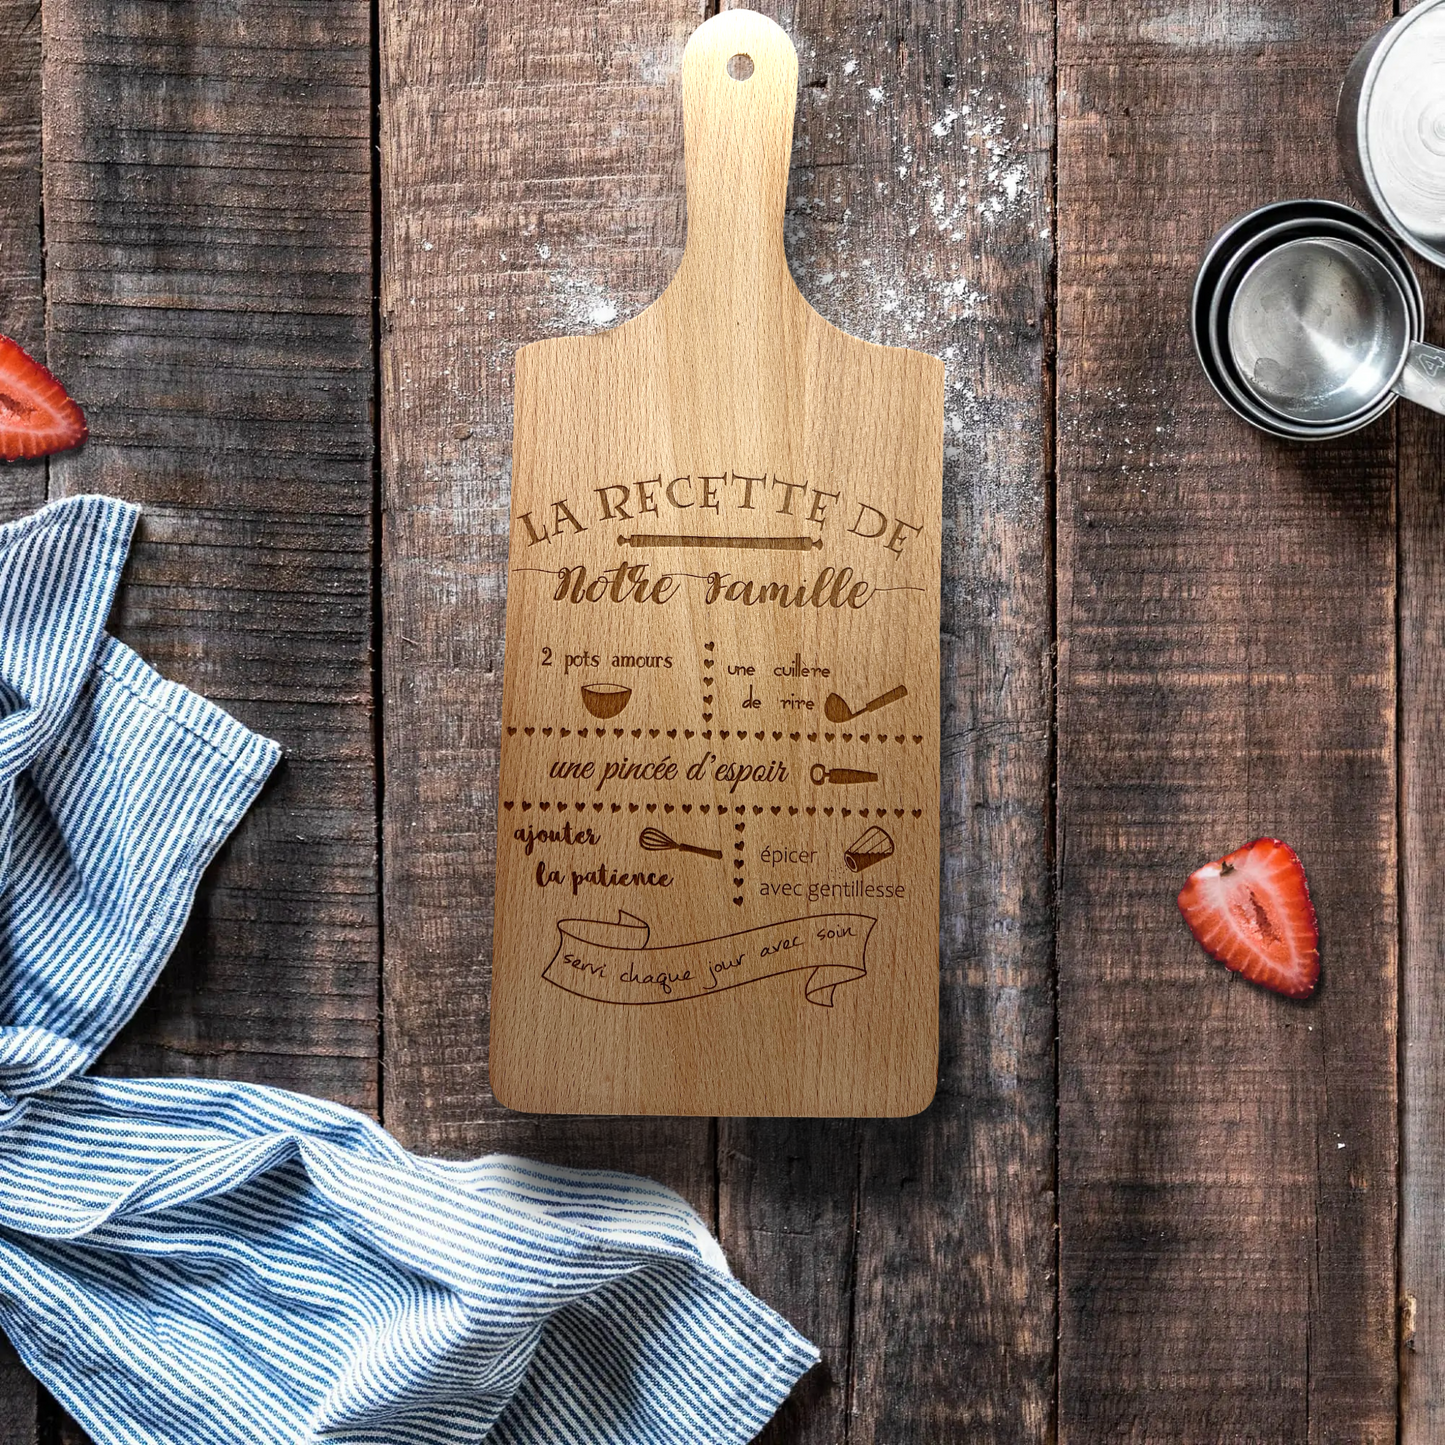 LA RECETTE DE
Notre Famille
2 pots amours
une cuillere
de rire
une pincée d'espoir
ajouter
la patience
épicer
avec gentillesse
servi chaque jour avec soin
4